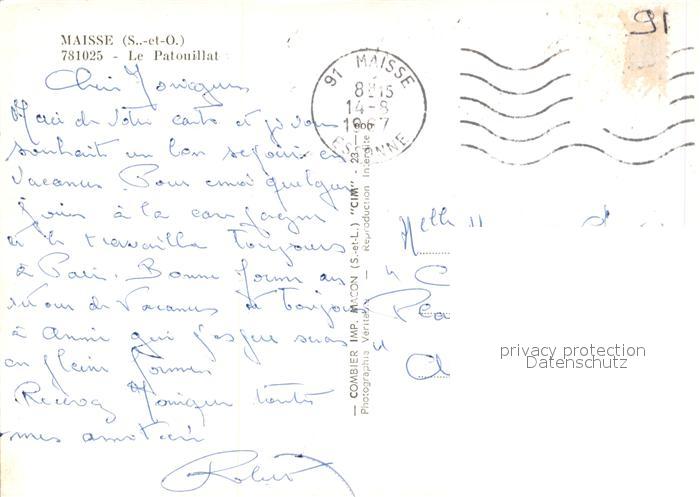 MAISSE (S.-et-O.)
781025 - Le Patouillat
91
91 MAISSE
8H15
14-8
1967
ESSONNE
Merci de votre carte et je vous
souhait un bon séjour en
vacances Pour moi quelques
jours à la campagne
et le travaille toujours
à Paris. Bonne forme au
retour de Vacances et toujours
à Annie qui j'espère sera
en pleine forme
Recevez Monique toutes
mes amitiés
Robert
— COMBIER IMP. MACON (S.-et-L.) "CIM" -
Photographie Véritable — Reproduction Interdite
Melle
privacy protection
Datenschutz